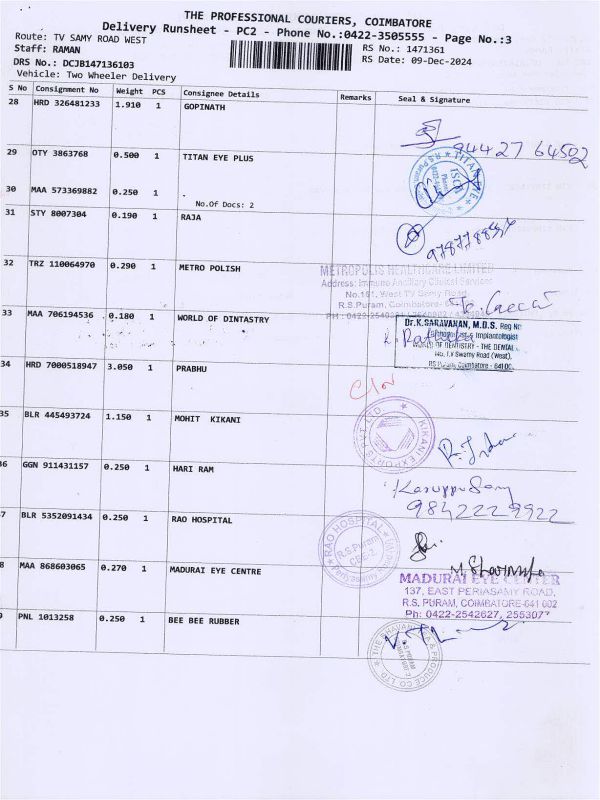 THE PROFESSIONAL COURIERS, COIMBATORE
Delivery Runsheet - PC2 - Phone No.:0422-3505555 - Page No.:3
Route: TV SAMY ROAD WEST
RS No.: 1471361
Staff: RAMAN
RS Date: 09-Dec-2024
DRS No.: DCJB147136103
Vehicle: Two Wheeler Delivery
S No Consignment No Weight PCS Consignee Details Remarks Seal & Signature
28 HRD 326481233 1.910 1 GOPINATH
94427 64502
29 OTY 3863768 0.500 1 TITAN EYE PLUS
TITAN EYE
R.S.Puram
30 MAA 573369882 0.250 1 .
No.Of Docs: 2
31 STY 8007304 0.190 1 RAJA
32 TRZ 110064970 0.290 1 METRO POLISH
METROPOLIS HEALTHCARE LIMITED
Address: Immuno Ancillary Clinical Services
No.161, West TV Samy Road
R.S.Puram, Coimbatore-
PH : 0422-
33 MAA 706194536 0.180 1 WORLD OF DINTASTRY
Dr.K.SARAVANAN, M.D.S. Reg No
& Implantologist
WORLD OF DENTISTRY - THE DENTAL
No. T.V Swamy Road (West),
RS Puram, Coimbatore - 641 00
34 HRD 7000518947 3.050 1 PRABHU
35 BLR 445493724 1.150 1 MOHIT KIKANI
KIKANI EXPORTS PVT LTD
36 GGN 911431157 0.250 1 HARI RAM
Karuppu Samy
98422 29922
7 BLR 5352091434 0.250 1 RAO HOSPITAL
RAO HOSPITAL
R.S.Puram
CBE-2
8 MAA 868603065 0.270 1 MADURAI EYE CENTRE
MADURAI EYE CENTER
137, EAST PERIASAMY ROAD,
R.S. PURAM, COIMBATORE-641 002
Ph: 0422-2542627, 255307
9 PNL 1013258 0.250 1 BEE BEE RUBBER